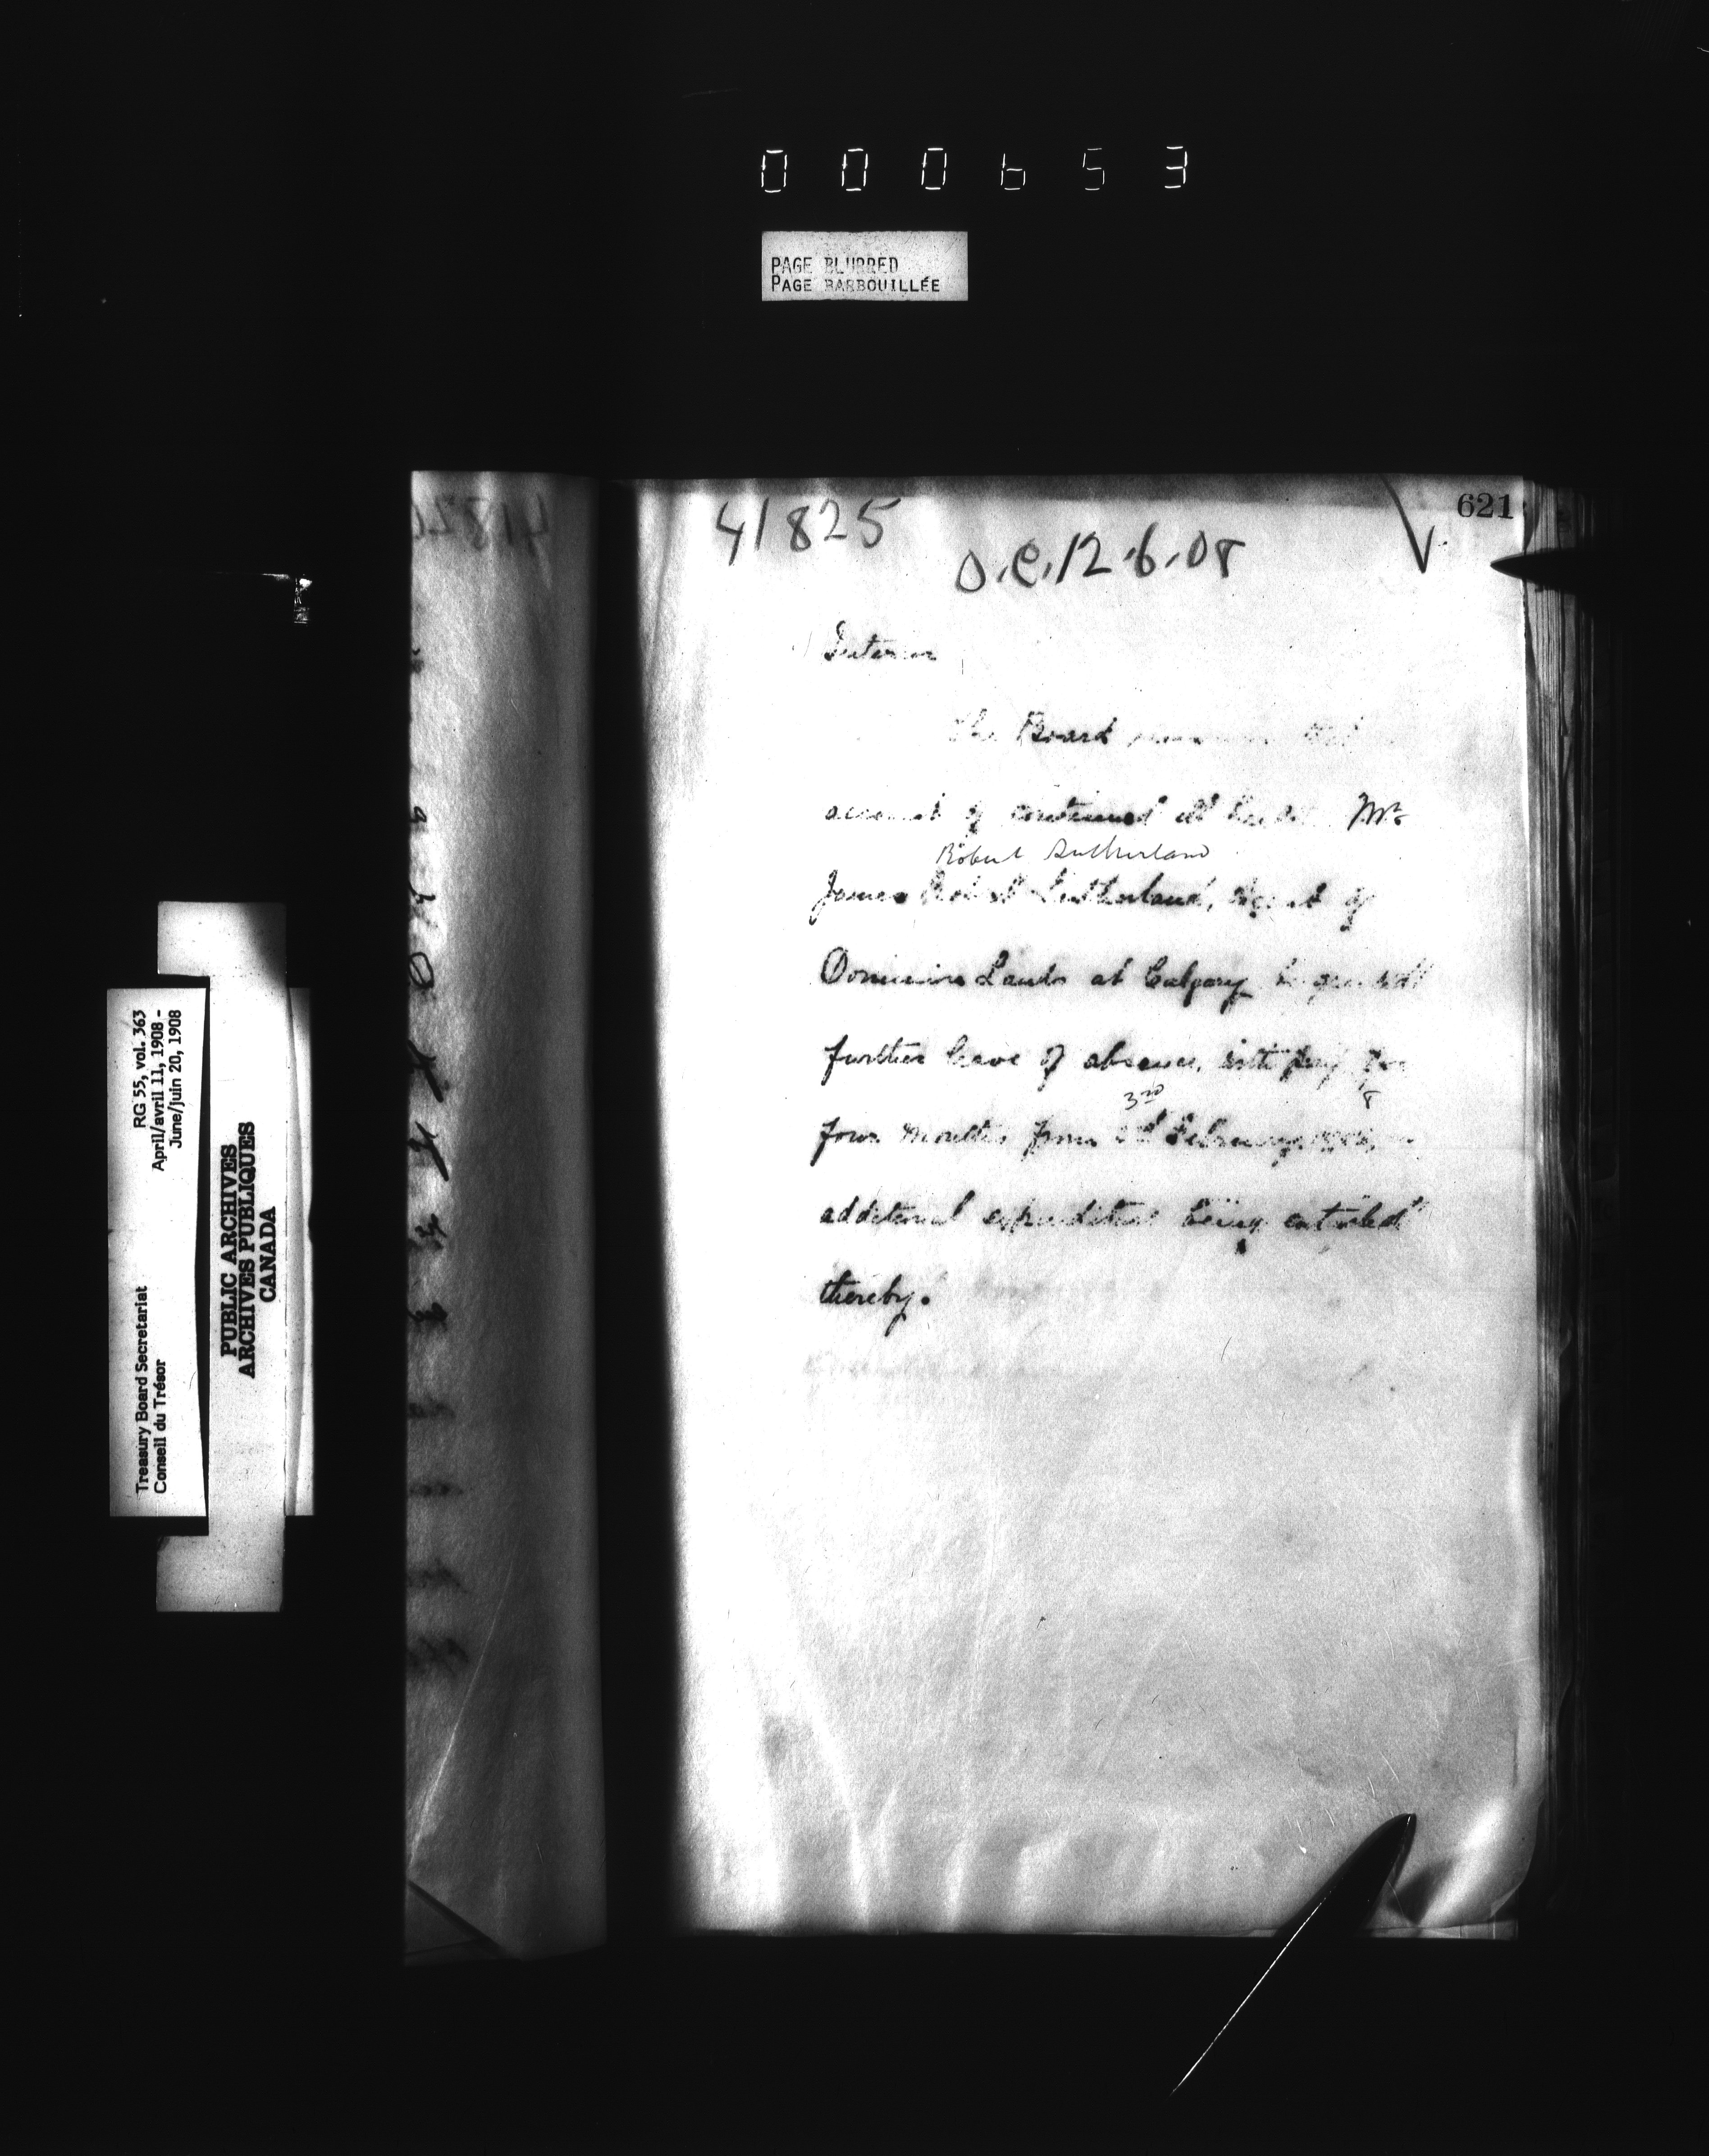 000653
PAGE BLURRED
PAGE BARBOUILLÉE
621
41825
O.C. 12.6.08
Interior
The Board that
account of continued ill health Mr
Robert Sutherland
James Robert Sutherland, Agent of
Dominion Lands at Calgary be granted
further leave of absence, with pay for
3rd 8
four months from February
additional expenditure being entailed
thereby.
RG 55, vol. 363
April/avril 11, 1908 -
June/juin 20, 1908
Treasury Board Secretariat
Conseil du Trésor
PUBLIC ARCHIVES
ARCHIVES PUBLIQUES
CANADA